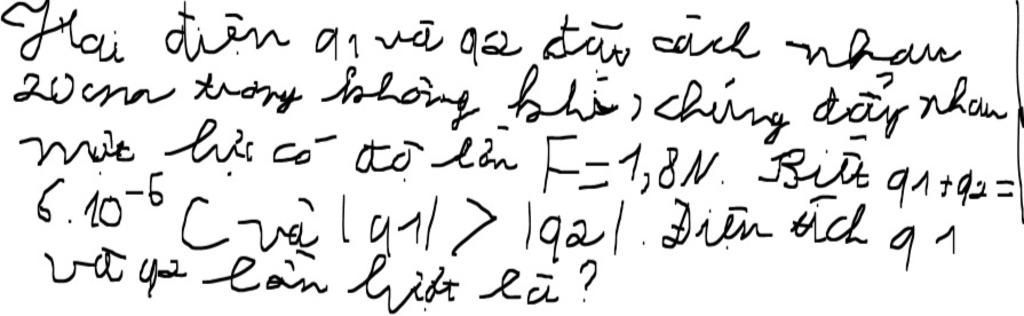 Hai điện q1 và q2 đặt cách nhau
20cm trong không khí, chúng đẩy nhau
một lực có độ lớn F = 1,8N. Biết q1+q2=
6.10⁻⁶ C và |q1| > |q2|. Điện tích q1
và q2 lần lượt là?